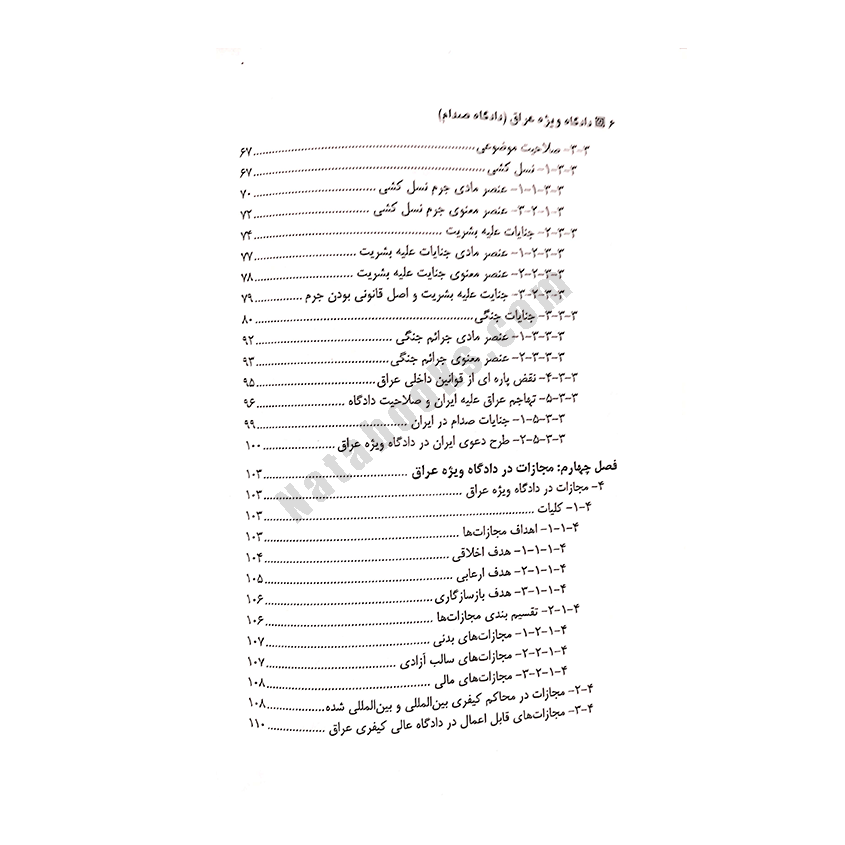 ۶ دادگاه ویژه عراق (دادگاه صدام)
۳-۳- صلاحیت موضوعی ............ ۶۷
۳-۳-۱- نسل کشی ............ ۶۷
۳-۳-۱-۱- عنصر مادی جرم نسل کشی ............ ۷۰
۳-۱-۲-۳- عنصر معنوی جرم نسل کشی ............ ۷۲
۳-۳-۲- جنایات علیه بشریت ............ ۷۴
۳-۳-۲-۱- عنصر مادی جنایات علیه بشریت ............ ۷۷
۳-۳-۲-۲- عنصر معنوی جنایت علیه بشریت ............ ۷۸
۳-۳-۲-۳- جنایت علیه بشریت و اصل قانونی بودن جرم ............ ۷۹
۳-۳-۳- جنایات جنگی ............ ۸۰
۳-۳-۳-۱- عنصر مادی جرائم جنگی ............ ۹۲
۳-۳-۳-۲- عنصر معنوی جرائم جنگی ............ ۹۳
۳-۳-۴- نقض پاره ای از قوانین داخلی عراق ............ ۹۵
۳-۳-۵- تهاجم عراق علیه ایران و صلاحیت دادگاه ............ ۹۶
۳-۳-۵-۱- جنایات صدام در ایران ............ ۹۹
۳-۳-۵-۲- طرح دعوی ایران در دادگاه ویژه عراق ............ ۱۰۰
فصل چهارم: مجازات در دادگاه ویژه عراق ............ ۱۰۳
۴- مجازات در دادگاه ویژه عراق ............ ۱۰۳
۴-۱- کلیات ............ ۱۰۳
۴-۱-۱- اهداف مجازات‌ها ............ ۱۰۳
۴-۱-۱-۱- هدف اخلاقی ............ ۱۰۴
۴-۱-۱-۲- هدف ارعابی ............ ۱۰۵
۴-۱-۱-۳- هدف بازسازگاری ............ ۱۰۶
۴-۱-۲- تقسیم بندی مجازات‌ها ............ ۱۰۶
۴-۱-۲-۱- مجازات‌های بدنی ............ ۱۰۷
۴-۱-۲-۲- مجازات‌های سالب آزادی ............ ۱۰۷
۴-۱-۲-۳- مجازات‌های مالی ............ ۱۰۸
۴-۲- مجازات در محاکم کیفری بین‌المللی و بین‌المللی شده ............ ۱۰۸
۴-۳- مجازات‌های قابل اعمال در دادگاه عالی کیفری عراق ............ ۱۱۰
Natabooks.com